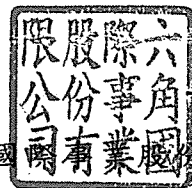 六角國
際事業
股份有
限公司